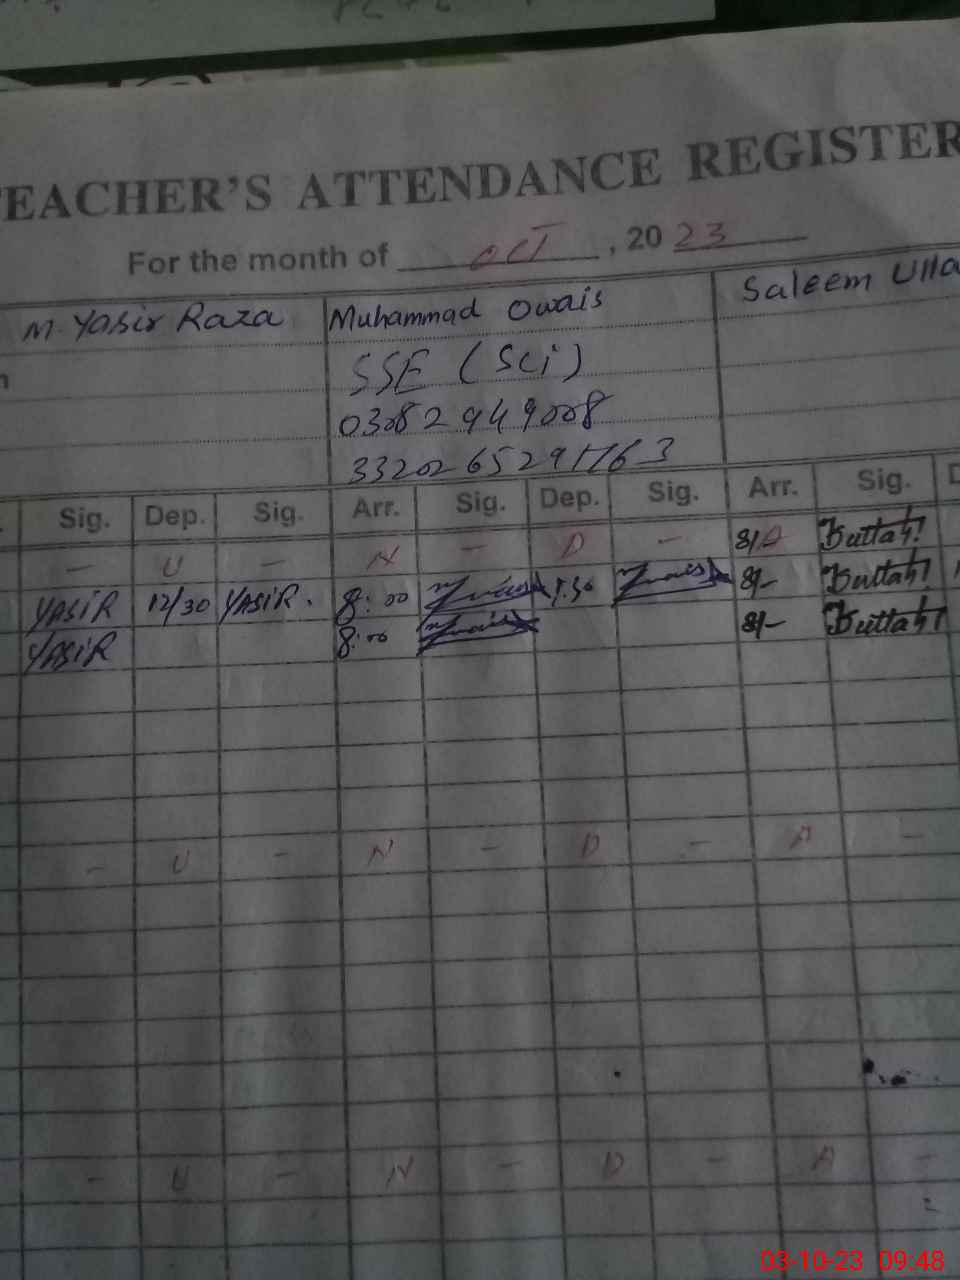 TEACHER'S ATTENDANCE REGISTER
For the month of OCT, 2023
M. Yasir Raza Muhammad Owais Saleem Ulla
SSE (Sci)
03082949008
3320265291763
Sig. Dep. Sig. Arr. Sig. Dep. Sig. Arr. Sig. D
- U - N - D - 8/A
YASIR 12/30 YASIR. 8:00 1:30 8/-
YASIR 8:00 8/-
- U - N - D - A -
- U - N - D - A -
03-10-23 09:48